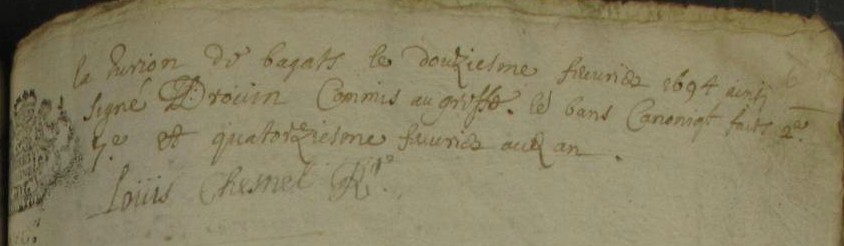 la Jurion de bagats le douziesme feuvrier 1694 ainsi
signé D: rouin Commis au greffe. les bans Canoniqt faits 2e.
7.e et quatorziesme feuvrier aud an.
Louis Chesnel Rtr